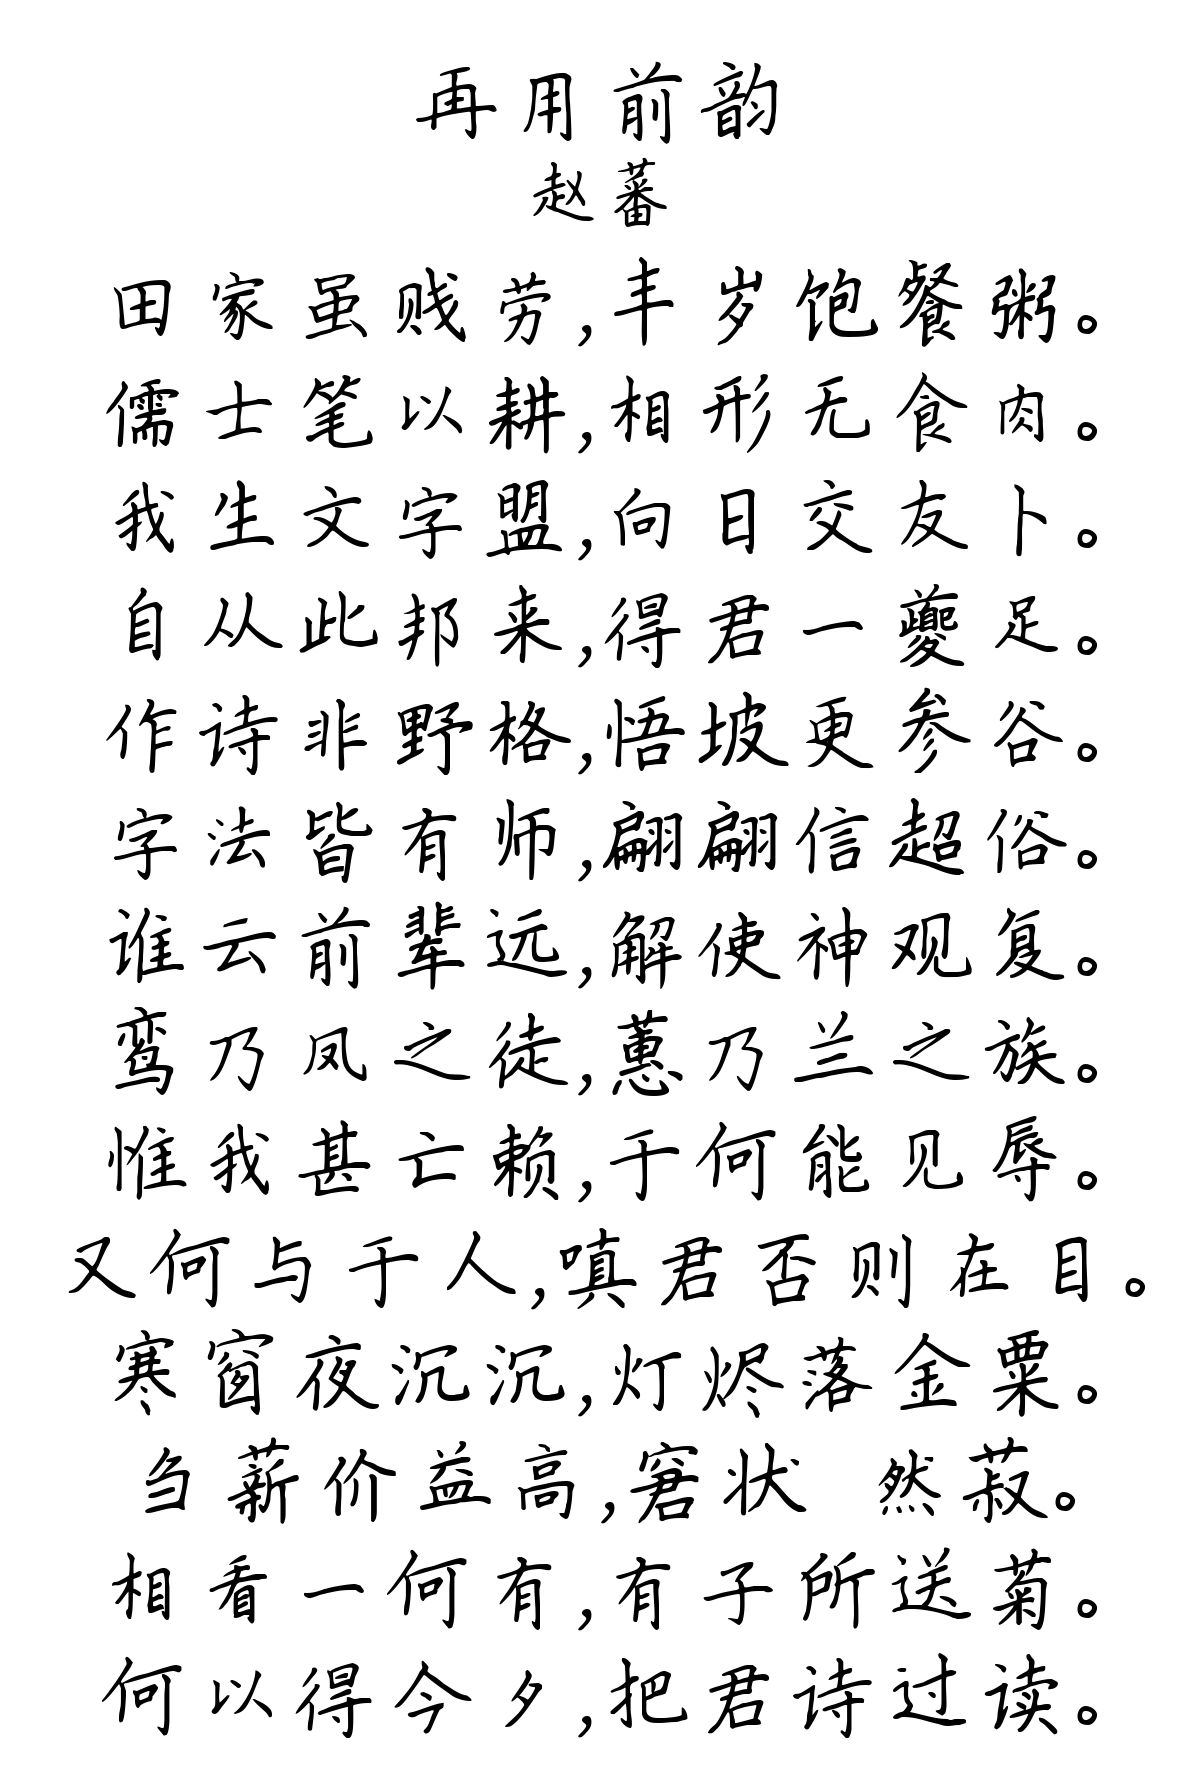 再用前韵
赵蕃
田家虽贱劳,丰岁饱餐粥。
儒士笔以耕,相形无食肉。
我生文字盟,向日交友卜。
自从此邦来,得君一夔足。
作诗非野格,悟坡更参谷。
字法皆有师,翩翩信超俗。
谁云前辈远,解使神观复。
鸾乃凤之徒,蕙乃兰之族。
惟我甚亡赖,于何能见辱。
又何与于人,嗔君否则在目。
寒窗夜沉沉,灯烬落金粟。
刍薪价益高,窘状 然菽。
相看一何有,有子所送菊。
何以得今夕,把君诗过读。